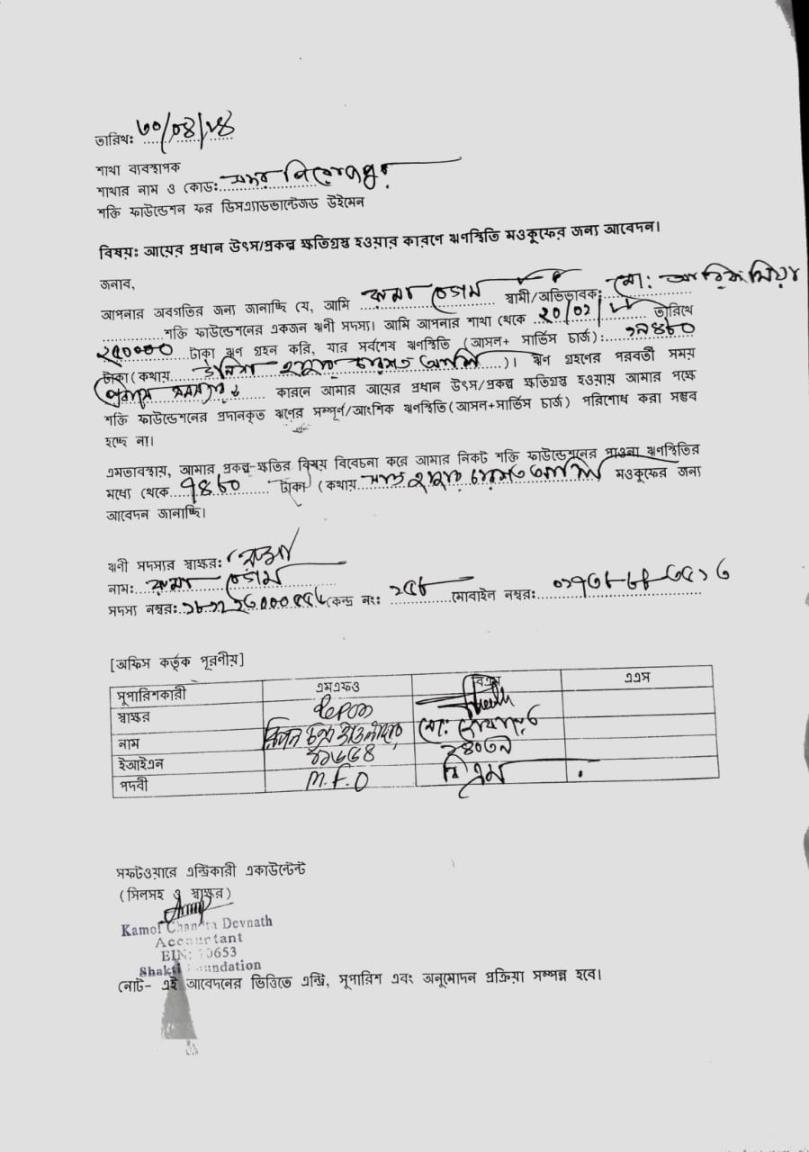 তারিখ: ৩০/০৪/২৪
শাখা ব্যবস্থাপক
শাখার নাম ও কোড: সদর পিরোজপুর
শক্তি ফাউন্ডেশন ফর ডিসএ্যাডভান্টেজড উইমেন
বিষয়: আয়ের প্রধান উৎস/প্রকল্প ক্ষতিগ্রস্থ হওয়ার কারণে ঋণস্থিতি মওকুফের জন্য আবেদন।
জনাব,
আপনার অবগতির জন্য জানাচ্ছি যে, আমি বেগম স্বামী/অভিভাবক: মো: মিয়া
শক্তি ফাউন্ডেশনের একজন ঋণী সদস্য। আমি আপনার শাখা থেকে তারিখে
টাকা ঋণ গ্রহন করি, যার সর্বশেষ ঋণস্থিতি (আসল+ সার্ভিস চার্জ): ১৯৪৮০
টাকা (কথায় উনিশ হাজার চারশত আশি)। ঋণ গ্রহণের পরবর্তী সময়
কারনে আমার আয়ের প্রধান উৎস/প্রকল্প ক্ষতিগ্রস্থ হওয়ায় আমার পক্ষে
শক্তি ফাউন্ডেশনের প্রদানকৃত ঋণের সম্পূর্ণ/আংশিক ঋণস্থিতি(আসল+সার্ভিস চার্জ) পরিশোধ করা সম্ভব
হচ্ছে না।
এমতাবস্থায়, আমার প্রকল্প-ক্ষতির বিষয় বিবেচনা করে আমার নিকট শক্তি ফাউন্ডেশনের পাওনা ঋণস্থিতির
মধ্যে থেকে ৭৪৮০ টাকা (কথায় সাত হাজার চারশত আশি মওকুফের জন্য
আবেদন জানাচ্ছি।
ঋণী সদস্যর স্বাক্ষর:
নাম: বেগম
সদস্য নম্বর: কেন্দ্র নং: মোবাইল নম্বর:
[অফিস কর্তৃক পূরণীয়]
সুপারিশকারী এমএফও বিএম এএস
স্বাক্ষর
নাম মো:
ইআইএন
পদবী M.F.O বি এম
সফটওয়ারে এন্ট্রিকারী একাউন্টেন্ট
(সিলসহ ও স্বাক্ষর)
Kamol Chandra Devnath
Accountant
EIN: 0653
Shakti Foundation
নোট- এই আবেদনের ভিত্তিতে এন্ট্রি, সুপারিশ এবং অনুমোদন প্রক্রিয়া সম্পন্ন হবে।